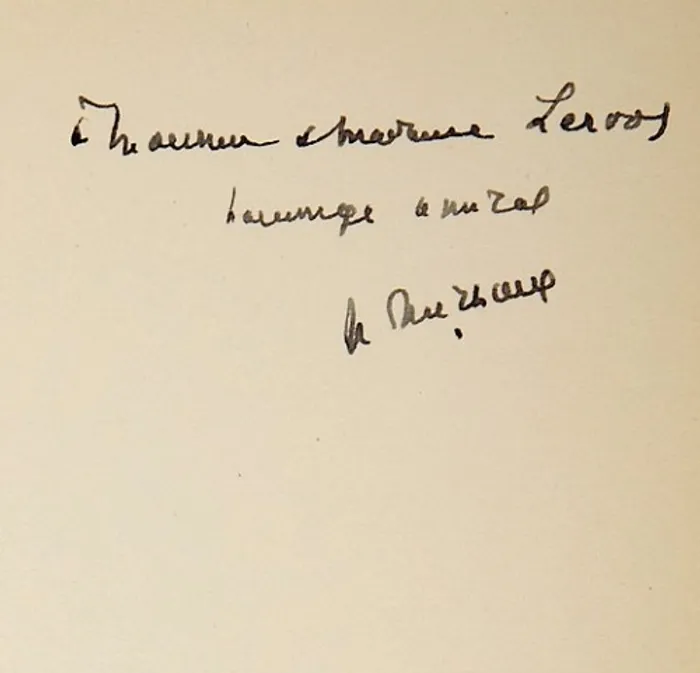 à Monsieur & Madame Leroos
hommage amical
H Michaux